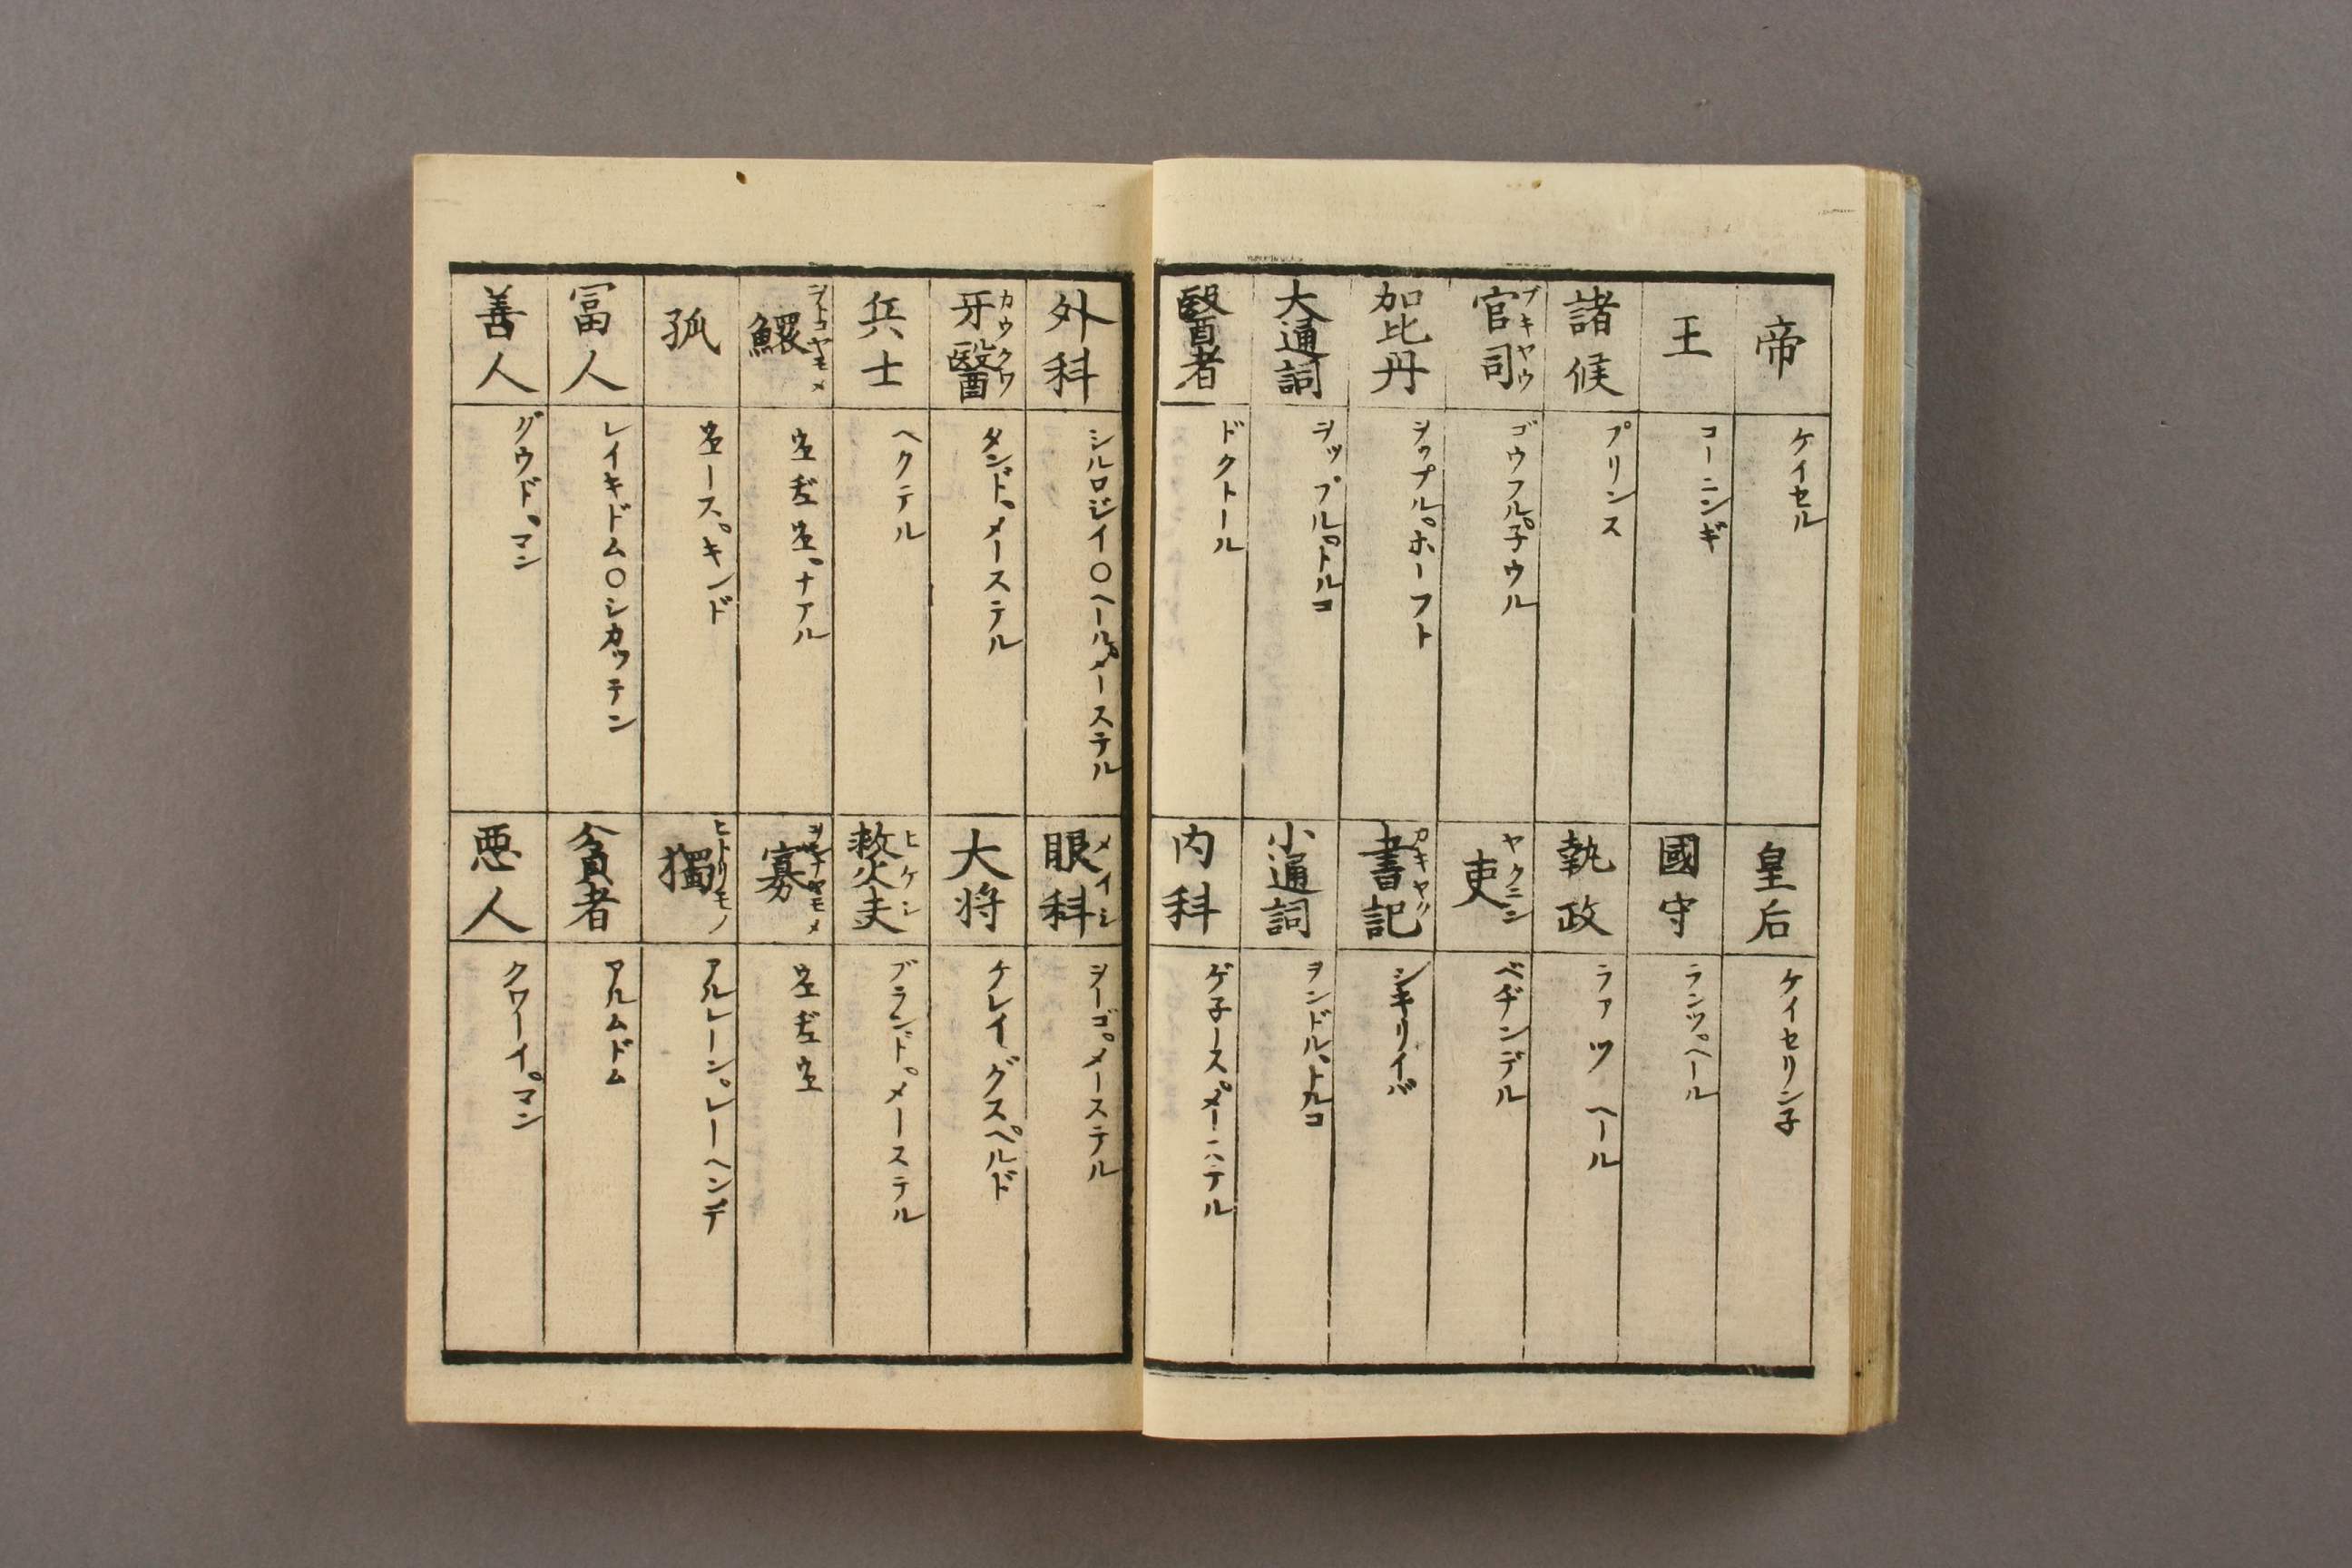 帝 ケイセル
皇后 ケイセリン子
王 コーニンギ
國守 ランツ。ヘール
諸候 プリンス
執政 ラァツ ヘール
官司 ブキヤウ ゴウフル。子ウル
吏 ヤクニン ベヂンデル
加比丹 ヲップル。ホーフト
書記 カキヤク シキリイバ
大通詞 ヲップル。トルコ
小通詞 ヲンドル。トルコ
醫者 ドクトール
内科 ゲ子ース。メーステル
外科 シルロジイ〇ヘール。メーステル
眼科 メイシ ヲーゴ。メーステル
牙醫 カウクワ タンド。メーステル
大将 ケレイグスヘルド
兵士 ヘクテル
𤆬夫 ヒケシ ブランド。メーステル
鰥 ヲトコヤモメ ヱヂヱ。ナアル
寡 ヲンナヤモメ ヱヂヱ
孤 ヱース。キンド
獨 ヒトリモノ アルレーン。レーヘンデ
冨人 レイキドム〇シカッテン
貧者 アルムドム
善人 グウド。マン
悪人 クワーイ。マン